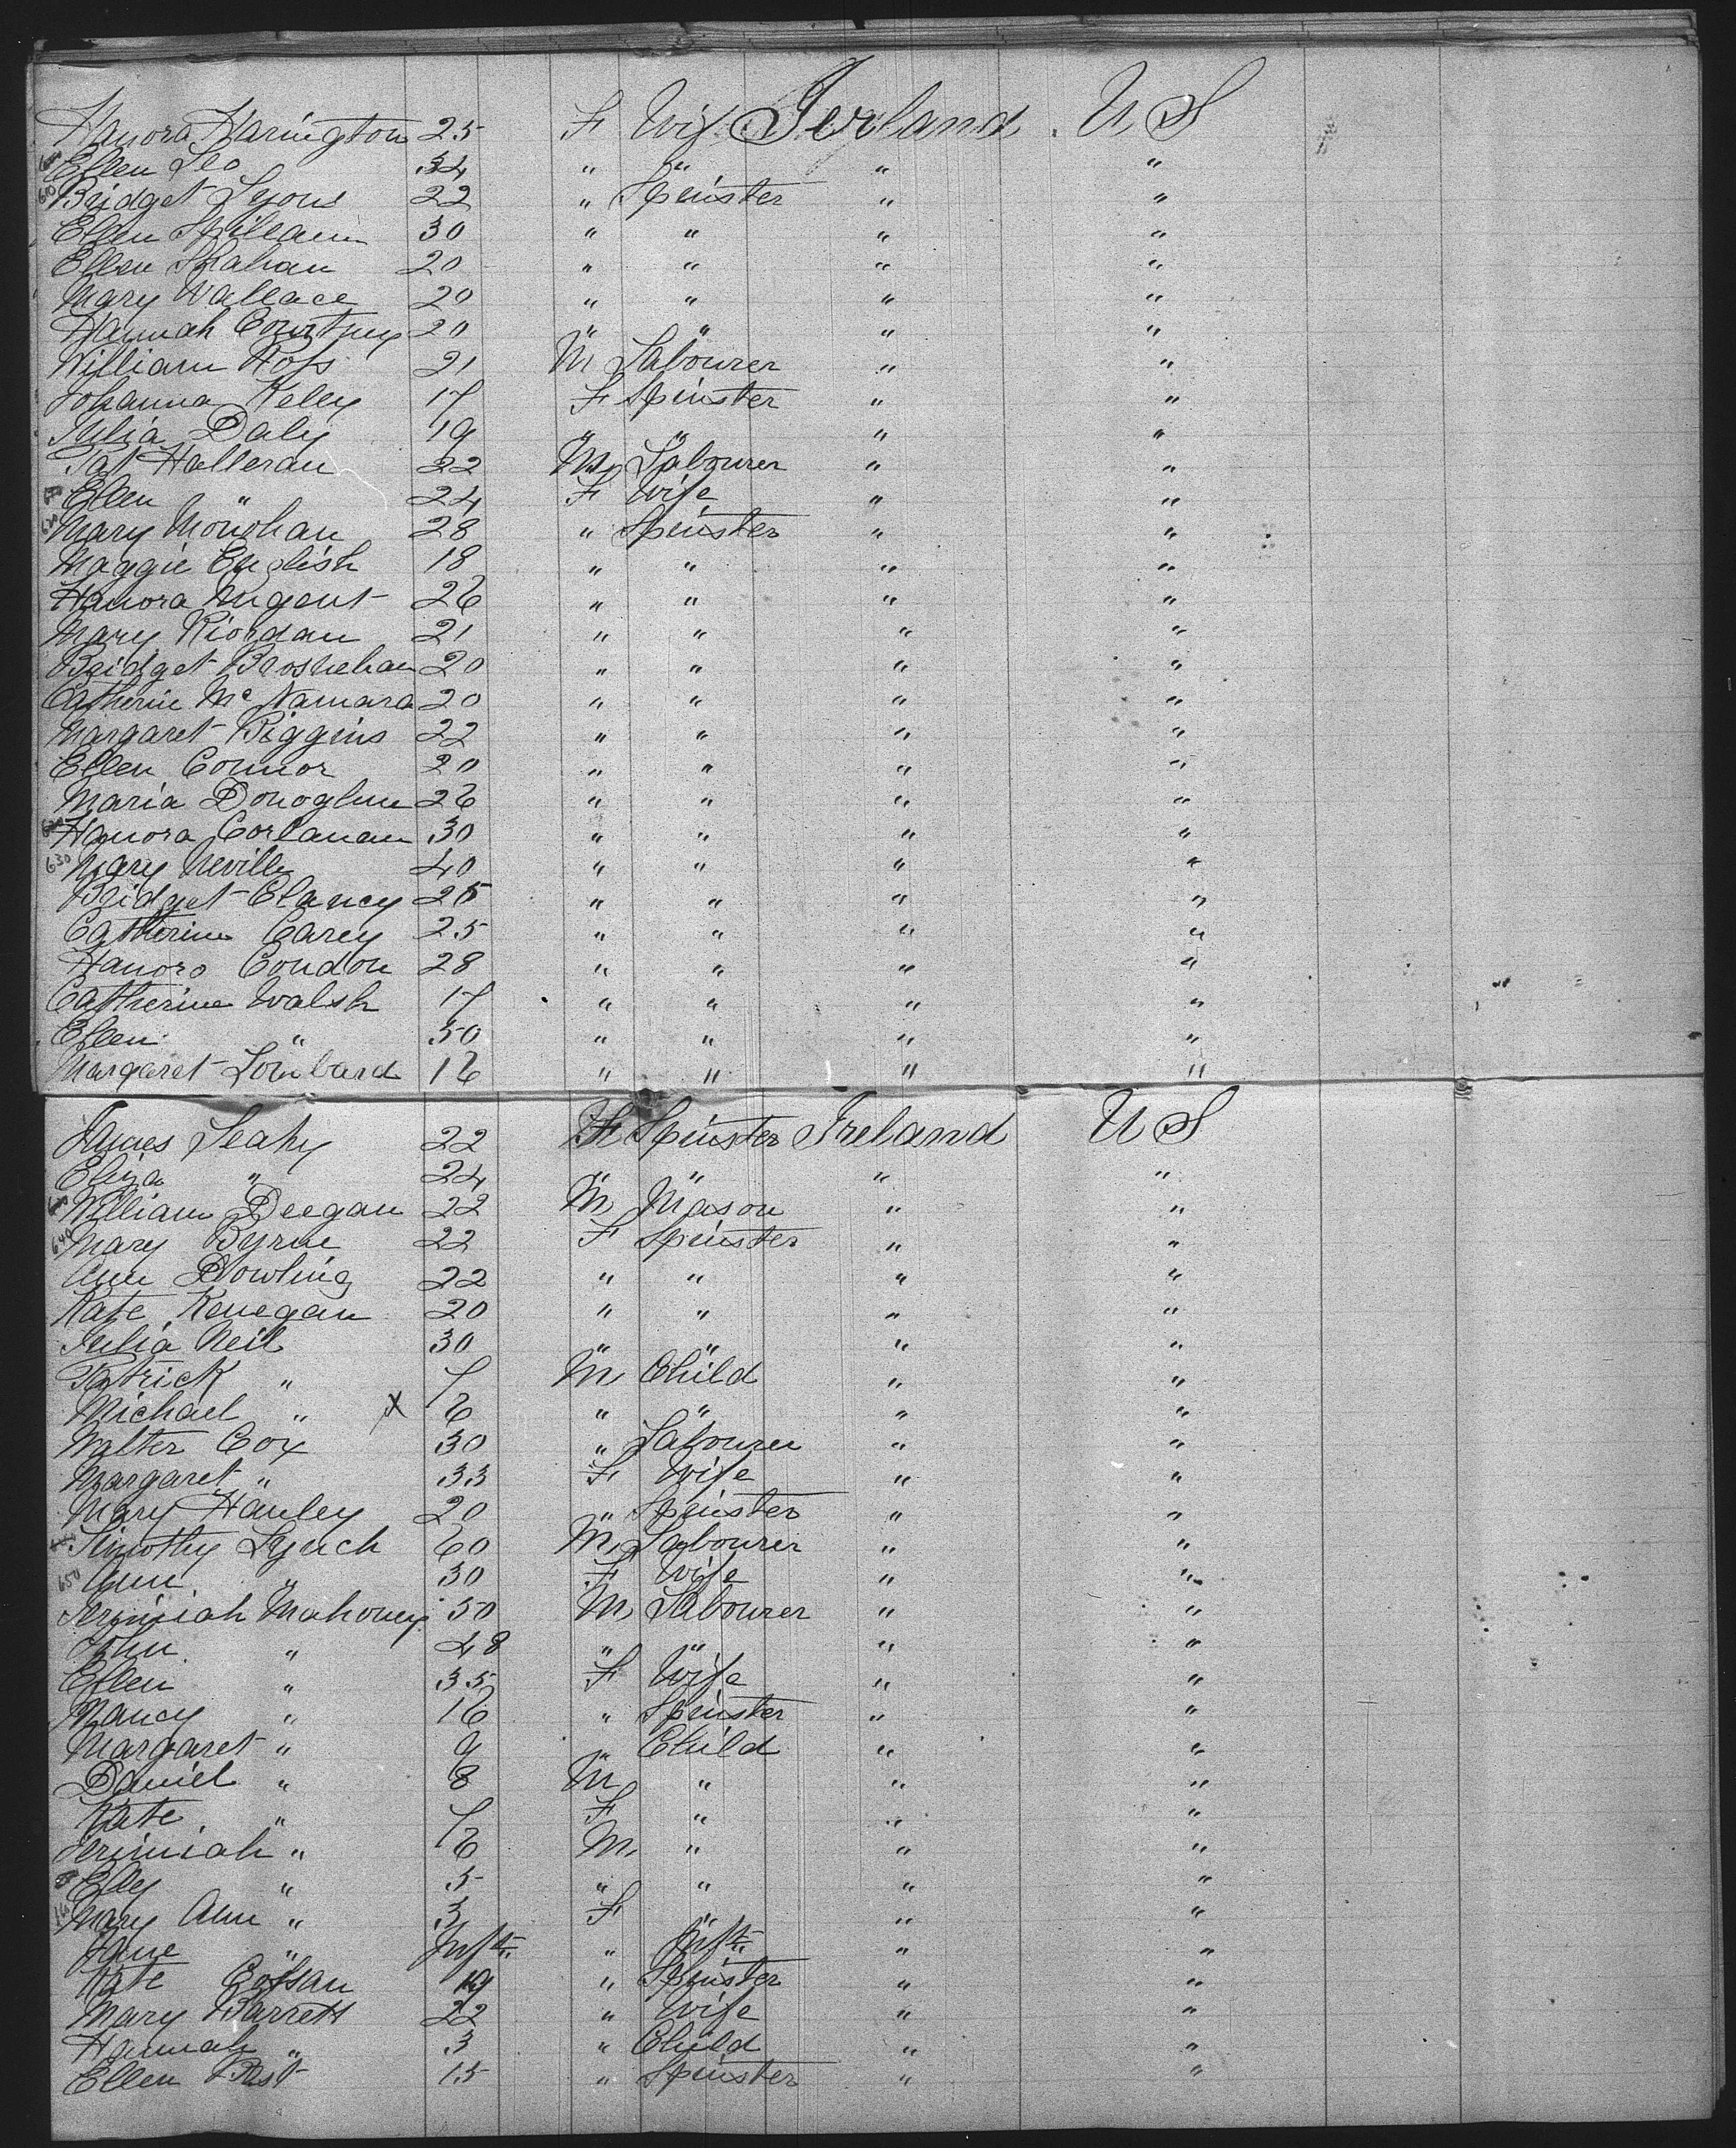 Hanora Harington 25 F Wif Ierland U S
Ellen Leo 34 " " " "
Bridget Lyons 22 " Spinster " "
Ellen Spillann 30 " " " "
Ellen Shahan 20 " " " "
Mary Wallace 20 " " " "
Hannah Courtney 20 " " " "
William Hofs 21 M Labourer " "
Johanna Keley 17 F Spinster " "
Julia Daly 19 " " " "
Pat Halleran 22 M Labourer " "
Ellen " 24 F Wife " "
Mary Monohan 28 " Spinster " "
Maggie English 18 " " " "
Hanora Nugent 26 " " " "
Mary Riordan 21 " " " "
Bridget Brosnehan 20 " " " "
Catherine Mc Namara 20 " " " "
Margaret Biggins 22 " " " "
Ellen Connor 20 " " " "
Maria Donoghue 26 " " " "
Hanora Corlanan 30 " " " "
630 Mary Neville 40 " " " "
Bridget Clancy 25 " " " "
Catherine Carey 25 " " " "
Hanoro Condon 28 " " " "
Catherine Walsh 17 " " " "
Ellen " 50 " " " "
Margaret Lombard 16 " " " "
James Leahy 22 F Spinster Ireland U S
Eliza " 24 " " " "
William Deegan 22 M Mason " "
640 Mary Byrne 22 F Spinster " "
Ann Dowling 22 " " " "
Kate Kenegan 20 " " " "
Julia Neil 30 " " " "
Patrick " 7 M Child " "
Michael " X 6 " " " "
Walter Cox 30 " Labourer " "
Margaret " 33 F Wife " "
Mary Hanley 20 " Spinster " "
Timothy Lynch 60 M Labourer " "
650 Ann " 30 F Wife " "
Jerimiah Mahoney 50 M Labourer " "
John " 48 " " " "
Ellen " 35 F Wife " "
Nancy " 16 " Spinster " "
Margaret " 9 " Child " "
Daniel " 8 M " " "
Kate " 7 F " " "
Jerimiah " 6 M " " "
Elly " 5 " " " "
Mary Ann " 3 F " " "
Jane " Inft " Inft " "
Kate 19 " Spinster " "
Mary Barrett 22 " Wife " "
Hannah " 3 " Child " "
Ellen Post 15 " Spinster " "